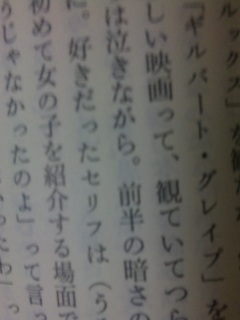 ルックス」が観た
『ギルバート・グレイプ』を
しい映画って、観ていてつら
は泣きながら。前半の暗さの
に。好きだったセリフは（う
初めて女の子を紹介する場面で
うじゃなかったのよ」って言っ